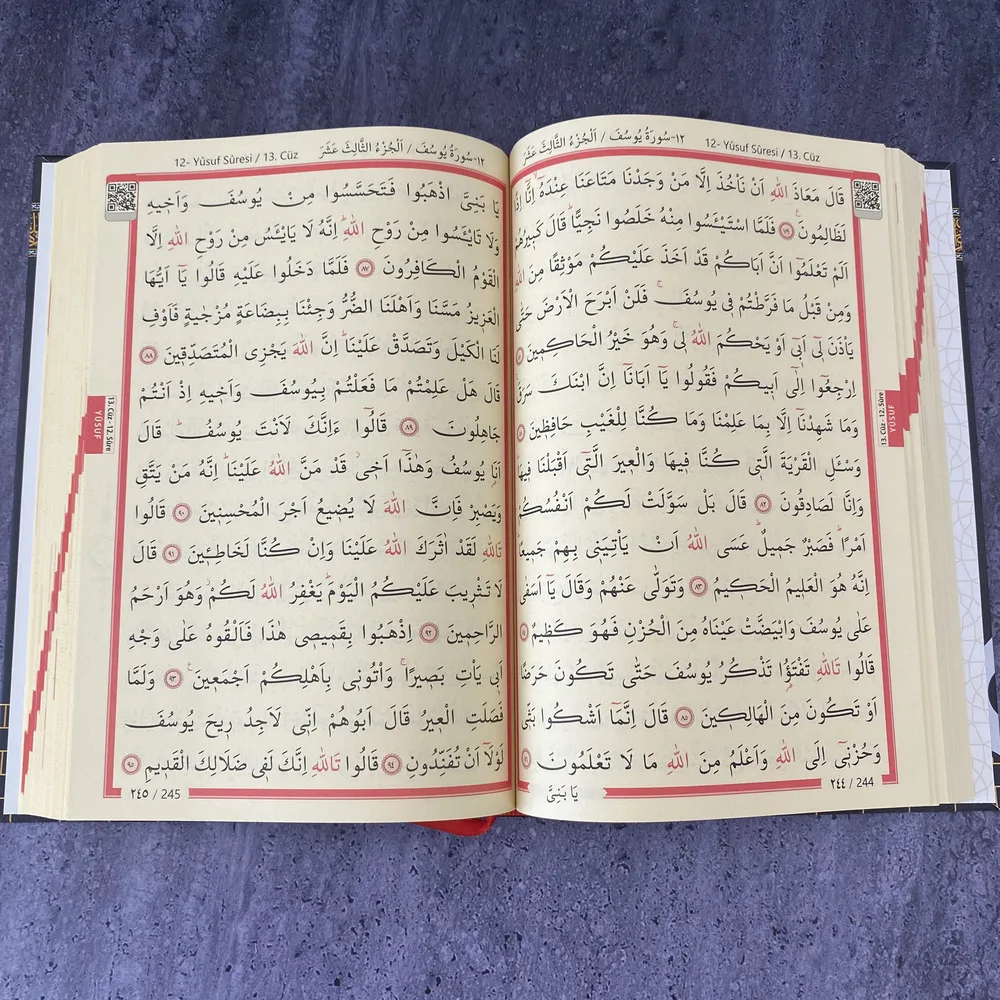 ١٢-سُورَةُ يُوسُفَ / اَلْجُزْءُ الثَّالِثَ عَشَرَ
12- Yûsuf Sûresi / 13. Cüz
قَالَ مَعَاذَ اللّٰهِ اَنْ نَأْخُذَ اِلَّا مَنْ وَجَدْنَا مَتَاعَنَا عِنْدَهُٓ اِنَّٓا
لَظَالِمُونَ۟ ﴿٧٩﴾ فَلَمَّا اسْتَيْـَٔسُوا مِنْهُ خَلَصُوا نَجِيًّاۜ قَالَ كَبِيرُهُمْ
اَلَمْ تَعْلَمُٓوا اَنَّ اَبَاكُمْ قَدْ اَخَذَ عَلَيْكُمْ مَوْثِقًا مِنَ اللّٰهِ
وَمِنْ قَبْلُ مَا فَرَّطْتُمْ فٖي يُوسُفَۚ فَلَنْ اَبْرَحَ الْاَرْضَ حَتّٰى
يَأْذَنَ لٖٓي اَبٖٓي اَوْ يَحْكُمَ اللّٰهُ لٖيۚ وَهُوَ خَيْرُ الْحَاكِمٖينَ
اِرْجِعُٓوا اِلٰٓى اَبٖيكُمْ فَقُولُوا يَٓا اَبَانَٓا اِنَّ ابْنَكَ سَرَقَ
وَمَا شَهِدْنَٓا اِلَّا بِمَا عَلِمْنَا وَمَا كُنَّا لِلْغَيْبِ حَافِظٖينَ
وَسْـَٔلِ الْقَرْيَةَ الَّتٖي كُنَّا فٖيهَا وَالْعٖيرَ الَّتٖٓي اَقْبَلْنَا فٖيهَا
وَاِنَّا لَصَادِقُونَ ﴿٨٢﴾ قَالَ بَلْ سَوَّلَتْ لَكُمْ اَنْفُسُكُمْ
اَمْرًاۜ فَصَبْرٌ جَمٖيلٌۜ عَسَى اللّٰهُ اَنْ يَأْتِيَنٖي بِهِمْ جَمٖيعًا
اِنَّهُ هُوَ الْعَلٖيمُ الْحَكٖيمُ ﴿٨٣﴾ وَتَوَلّٰى عَنْهُمْ وَقَالَ يَٓا اَسَفٰى
عَلٰى يُوسُفَ وَابْيَضَّتْ عَيْنَاهُ مِنَ الْحُزْنِ فَهُوَ كَظٖيمٌ
قَالُوا تَاللّٰهِ تَفْتَؤُ۬ا تَذْكُرُ يُوسُفَ حَتّٰى تَكُونَ حَرَضًا
اَوْ تَكُونَ مِنَ الْهَالِكٖينَ ﴿٨٥﴾ قَالَ اِنَّمَٓا اَشْكُوا بَثّٖي
وَحُزْنٖٓي اِلَى اللّٰهِ وَاَعْلَمُ مِنَ اللّٰهِ مَا لَا تَعْلَمُونَ
يَا بَنِيَّ
٢٤٤ / 244
13. Cüz - 12. Sûre
YÛSUF
12- Yûsuf Sûresi / 13. Cüz
١٢-سُورَةُ يُوسُفَ / اَلْجُزْءُ الثَّالِثَ عَشَرَ
يَا بَنِيَّ اذْهَبُوا فَتَحَسَّسُوا مِنْ يُوسُفَ وَاَخٖيهِ
وَلَا تَا۬يْـَٔسُوا مِنْ رَوْحِ اللّٰهِۜ اِنَّهُ لَا يَا۬يْـَٔسُ مِنْ رَوْحِ اللّٰهِ اِلَّا
الْقَوْمُ الْكَافِرُونَ ﴿٨٧﴾ فَلَمَّا دَخَلُوا عَلَيْهِ قَالُوا يَٓا اَيُّهَا
الْعَزٖيزُ مَسَّنَا وَاَهْلَنَا الضُّرُّ وَجِئْنَا بِبِضَاعَةٍ مُزْجٰيةٍ فَاَوْفِ
لَنَا الْكَيْلَ وَتَصَدَّقْ عَلَيْنَاۜ اِنَّ اللّٰهَ يَجْزِي الْمُتَصَدِّقٖينَ ﴿٨٨﴾
قَالَ هَلْ عَلِمْتُمْ مَا فَعَلْتُمْ بِيُوسُفَ وَاَخٖيهِ اِذْ اَنْتُمْ
جَاهِلُونَ ﴿٨٩﴾ قَالُٓوا ءَاِنَّكَ لَاَنْتَ يُوسُفُۜ قَالَ
اَنَا۬ يُوسُفُ وَهٰذَٓا اَخٖيۘ قَدْ مَنَّ اللّٰهُ عَلَيْنَاۜ اِنَّهُ مَنْ يَتَّقِ
وَيَصْبِرْ فَاِنَّ اللّٰهَ لَا يُضٖيعُ اَجْرَ الْمُحْسِنٖينَ ﴿٩٠﴾ قَالُوا
تَاللّٰهِ لَقَدْ اٰثَرَكَ اللّٰهُ عَلَيْنَا وَاِنْ كُنَّا لَخَاطِـٖٔينَ ﴿٩١﴾ قَالَ
لَا تَثْرٖيبَ عَلَيْكُمُ الْيَوْمَۜ يَغْفِرُ اللّٰهُ لَكُمْۘ وَهُوَ اَرْحَمُ
الرَّاحِمٖينَ ﴿٩٢﴾ اِذْهَبُوا بِقَمٖيصٖي هٰذَا فَاَلْقُوهُ عَلٰى وَجْهِ
اَبٖي يَأْتِ بَصٖيرًاۚ وَأْتُونٖي بِاَهْلِكُمْ اَجْمَعٖينَ۟ ﴿٩٣﴾ وَلَمَّا
فَصَلَتِ الْعٖيرُ قَالَ اَبُوهُمْ اِنّٖي لَاَجِدُ رٖيحَ يُوسُفَ
لَوْلَٓا اَنْ تُفَنِّدُونِ ﴿٩٤﴾ قَالُوا تَاللّٰهِ اِنَّكَ لَفٖي ضَلَالِكَ الْقَدٖيمِ ﴿٩٥﴾
٢٤٥ / 245
13. Cüz - 12. Sûre
YÛSUF